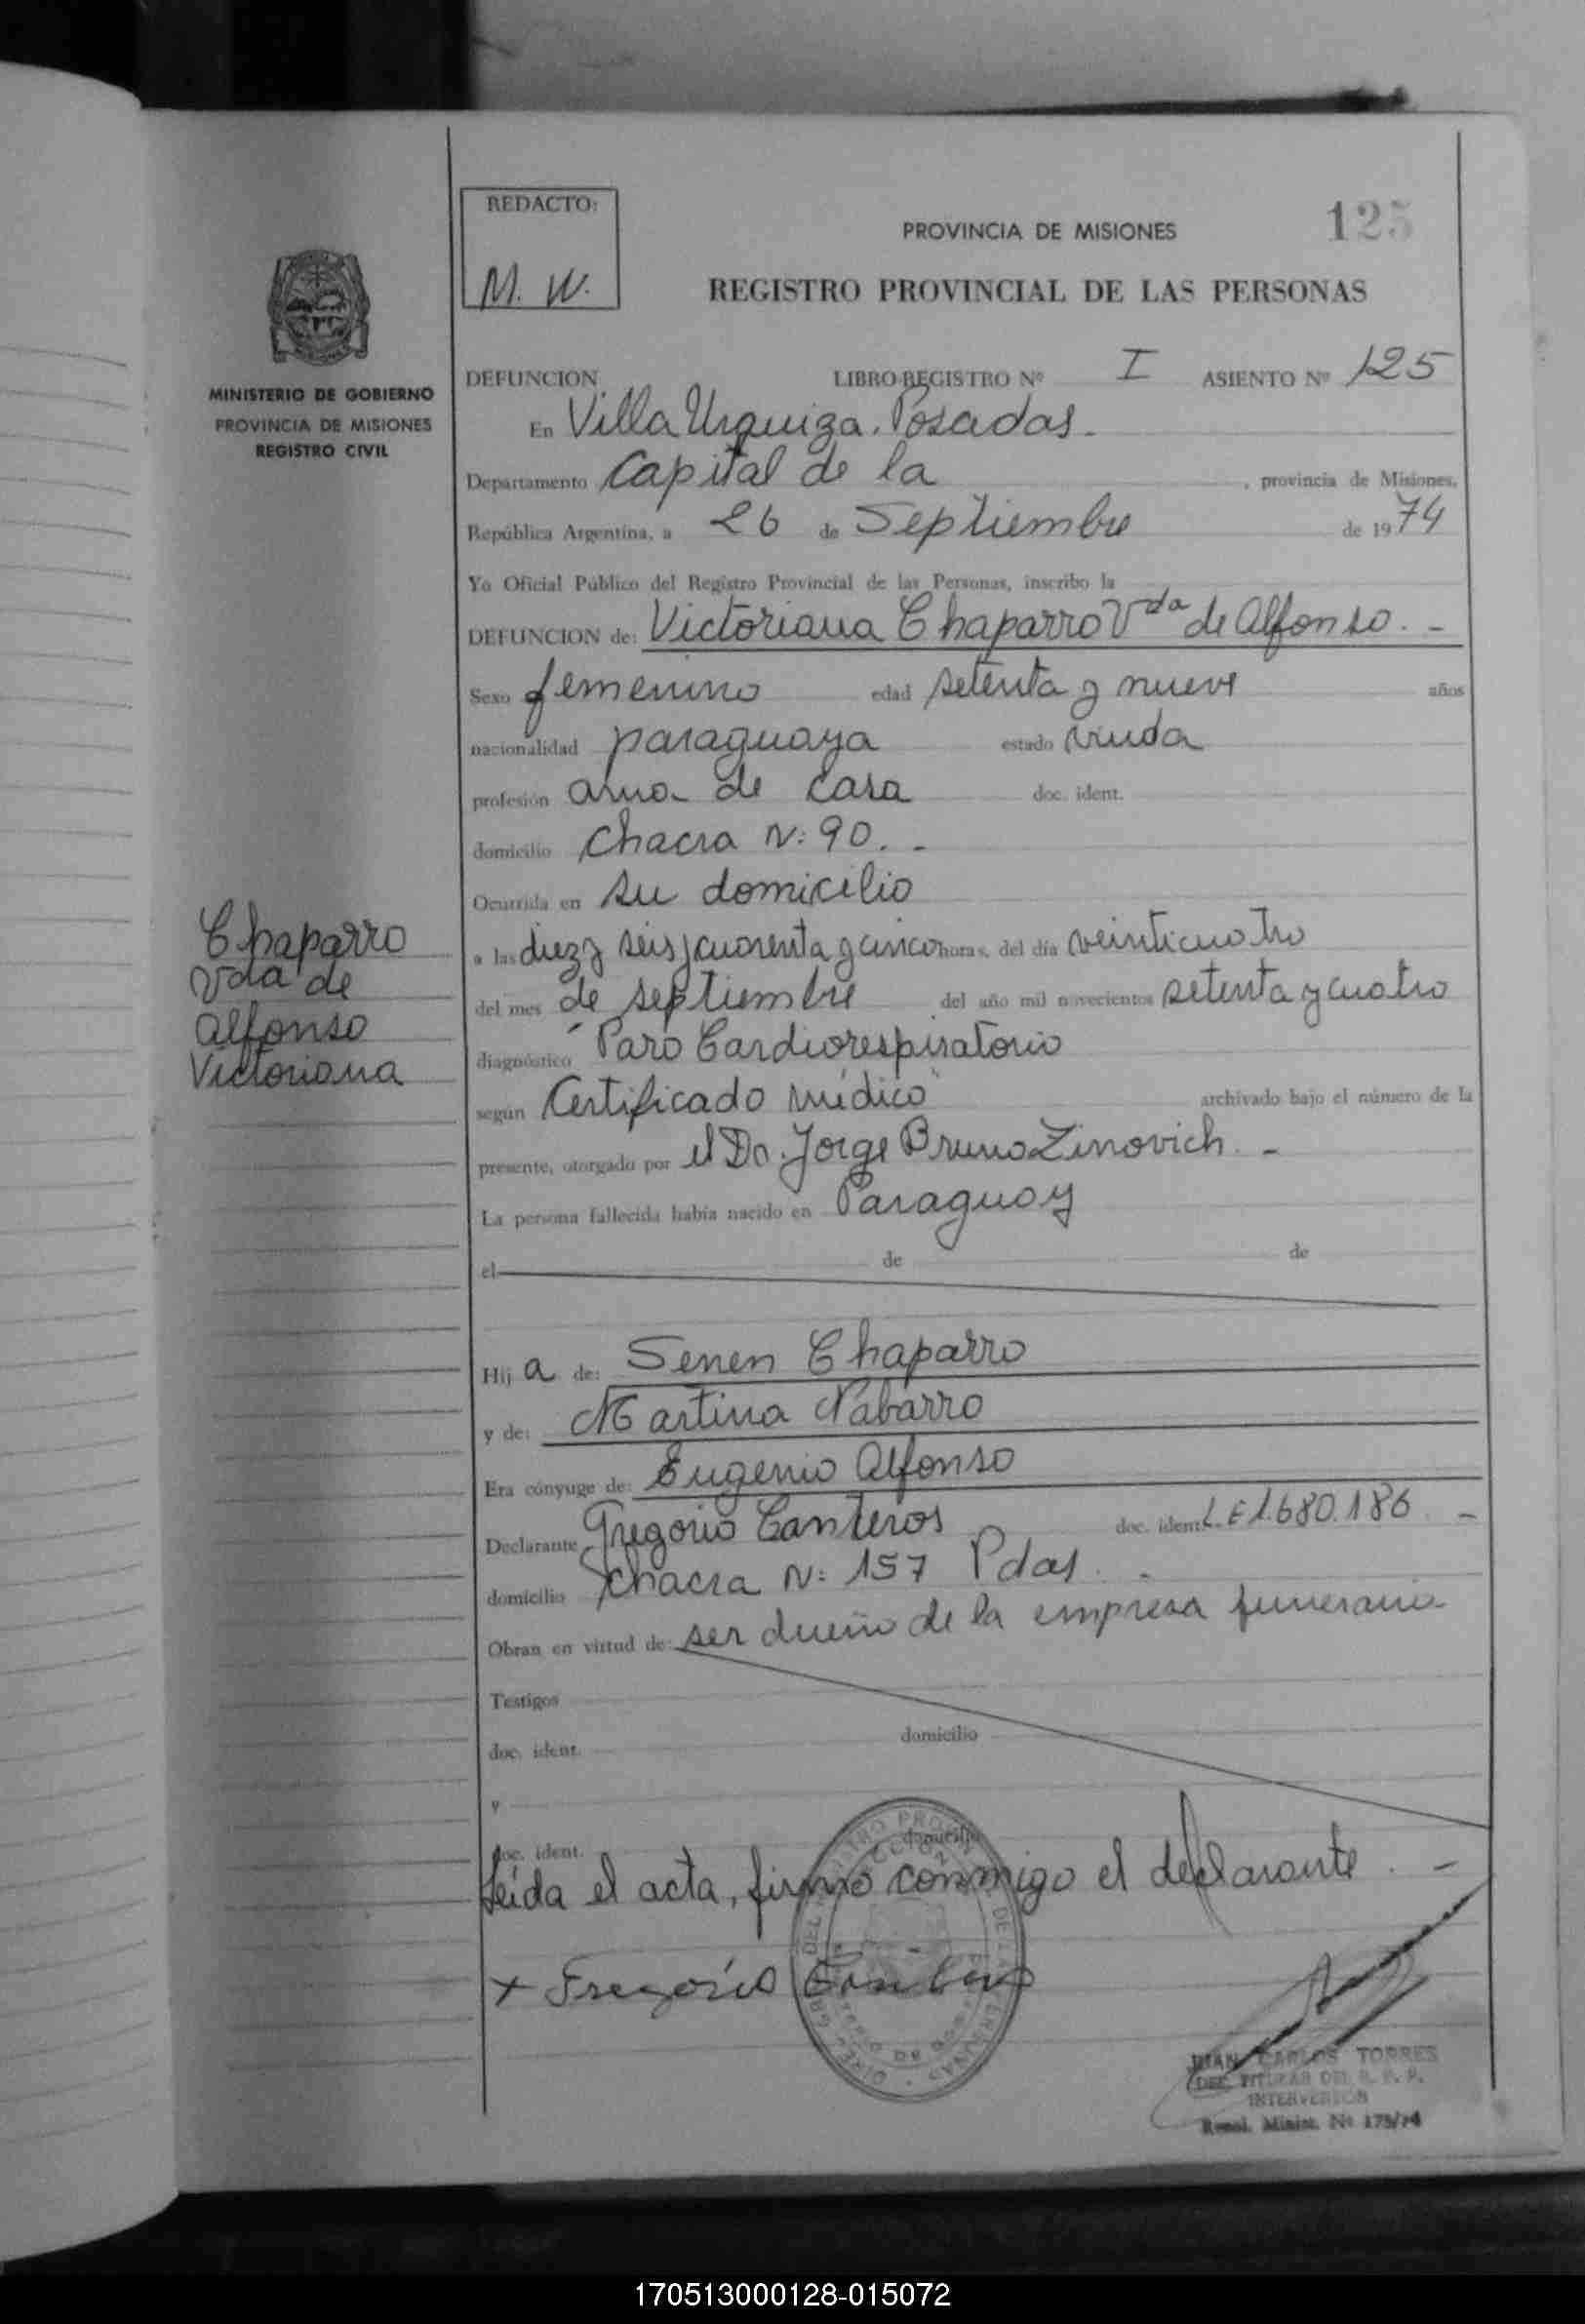 REDACTO:
M. W.
PROVINCIA DE MISIONES
125
REGISTRO PROVINCIAL DE LAS PERSONAS
MINISTERIO DE GOBIERNO
PROVINCIA DE MISIONES
REGISTRO CIVIL
DEFUNCION LIBRO-REGISTRO Nº I ASIENTO Nº 125
En Villa Urquiza. Posadas.-
Departamento Capital de la , provincia de Misiones,
República Argentina, a 26 de Septiembre de 1974
Yo Oficial Público del Registro Provincial de las Personas, inscribo la
DEFUNCION de: Victoriana Chaparro Vda de Alfonso. -
Sexo femenino edad setenta y nueve años
nacionalidad paraguaya estado viuda
profesión ama de casa doc. ident.
domicilio Chacra N: 90. -
Ocurrida en su domicilio
a las diez y seis y cuarenta y cinco horas, del día veinticuatro
del mes de septiembre del año mil novecientos setenta y cuatro
diagnóstico "Paro Cardiorespiratorio"
según Certificado médico archivado bajo el número de la
presente, otorgado por el Dr. Jorge Bruno Zinovich. -
La persona fallecida había nacido en Paraguay
el de de
Chaparro
Vda de
Alfonso
Victoriana
Hij a de: Senen Chaparro
y de: Martina Nabarro
Era cónyuge de: Eugenio Alfonso
Declarante Gregorio Canteros doc. ident. L.E 1.680.186. -
domicilio Chacra N: 157 Pdas. -
Obran en virtud de: ser dueño de la empresa funeraria
Testigos
doc. ident. domicilio
y
doc. ident. domicilio
Leída el acta, firmó conmigo el declarante. -
+ Gregorio Canteros
JUAN CARLOS TORRES
DEL. TITULAR DEL R. P. P.
INTERVENCION
Resol. Minist. Nº 175/74
170513000128-015072